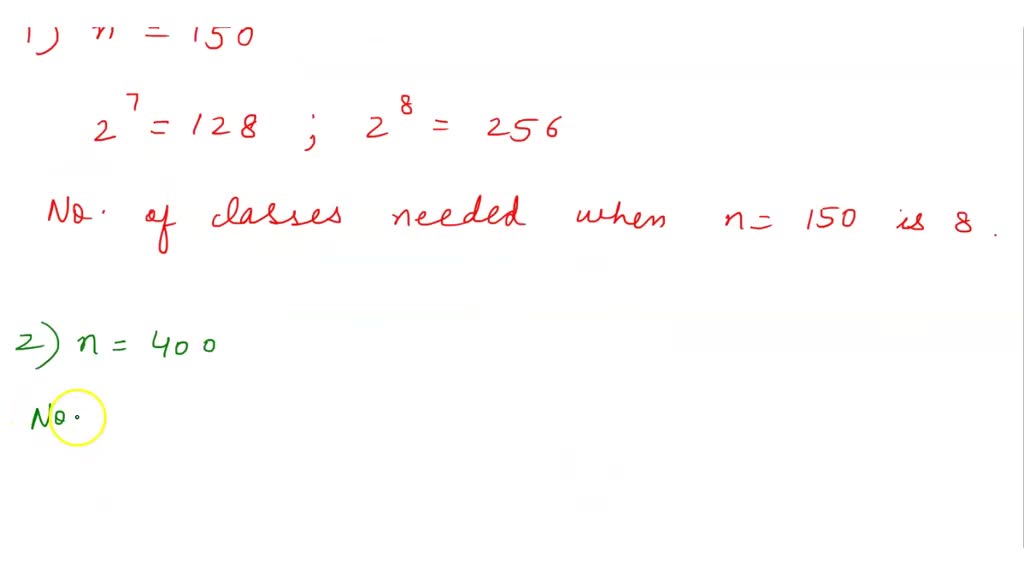 1) n = 150
2^7 = 128 ; 2^8 = 256
No. of classes needed when n= 150 is 8.
2) n = 400
No.